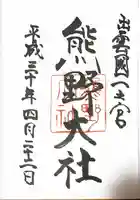 出雲國一之宮
熊野大社
平成三十年四月二十一日